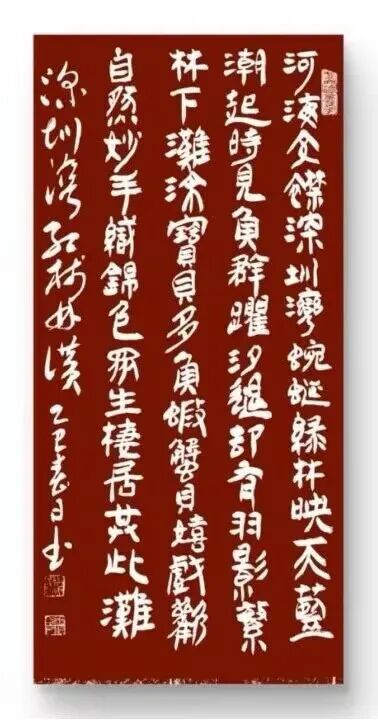 河海深圳灣蜿蜒綠林映天藍
潮起時見魚群躍汐退却有羽影繁
林下灘涂寶貝多魚蝦蟹貝嬉戲歡
自然妙手織錦色眾生棲居共此灘
深圳灣紅樹林 乙巳春日书